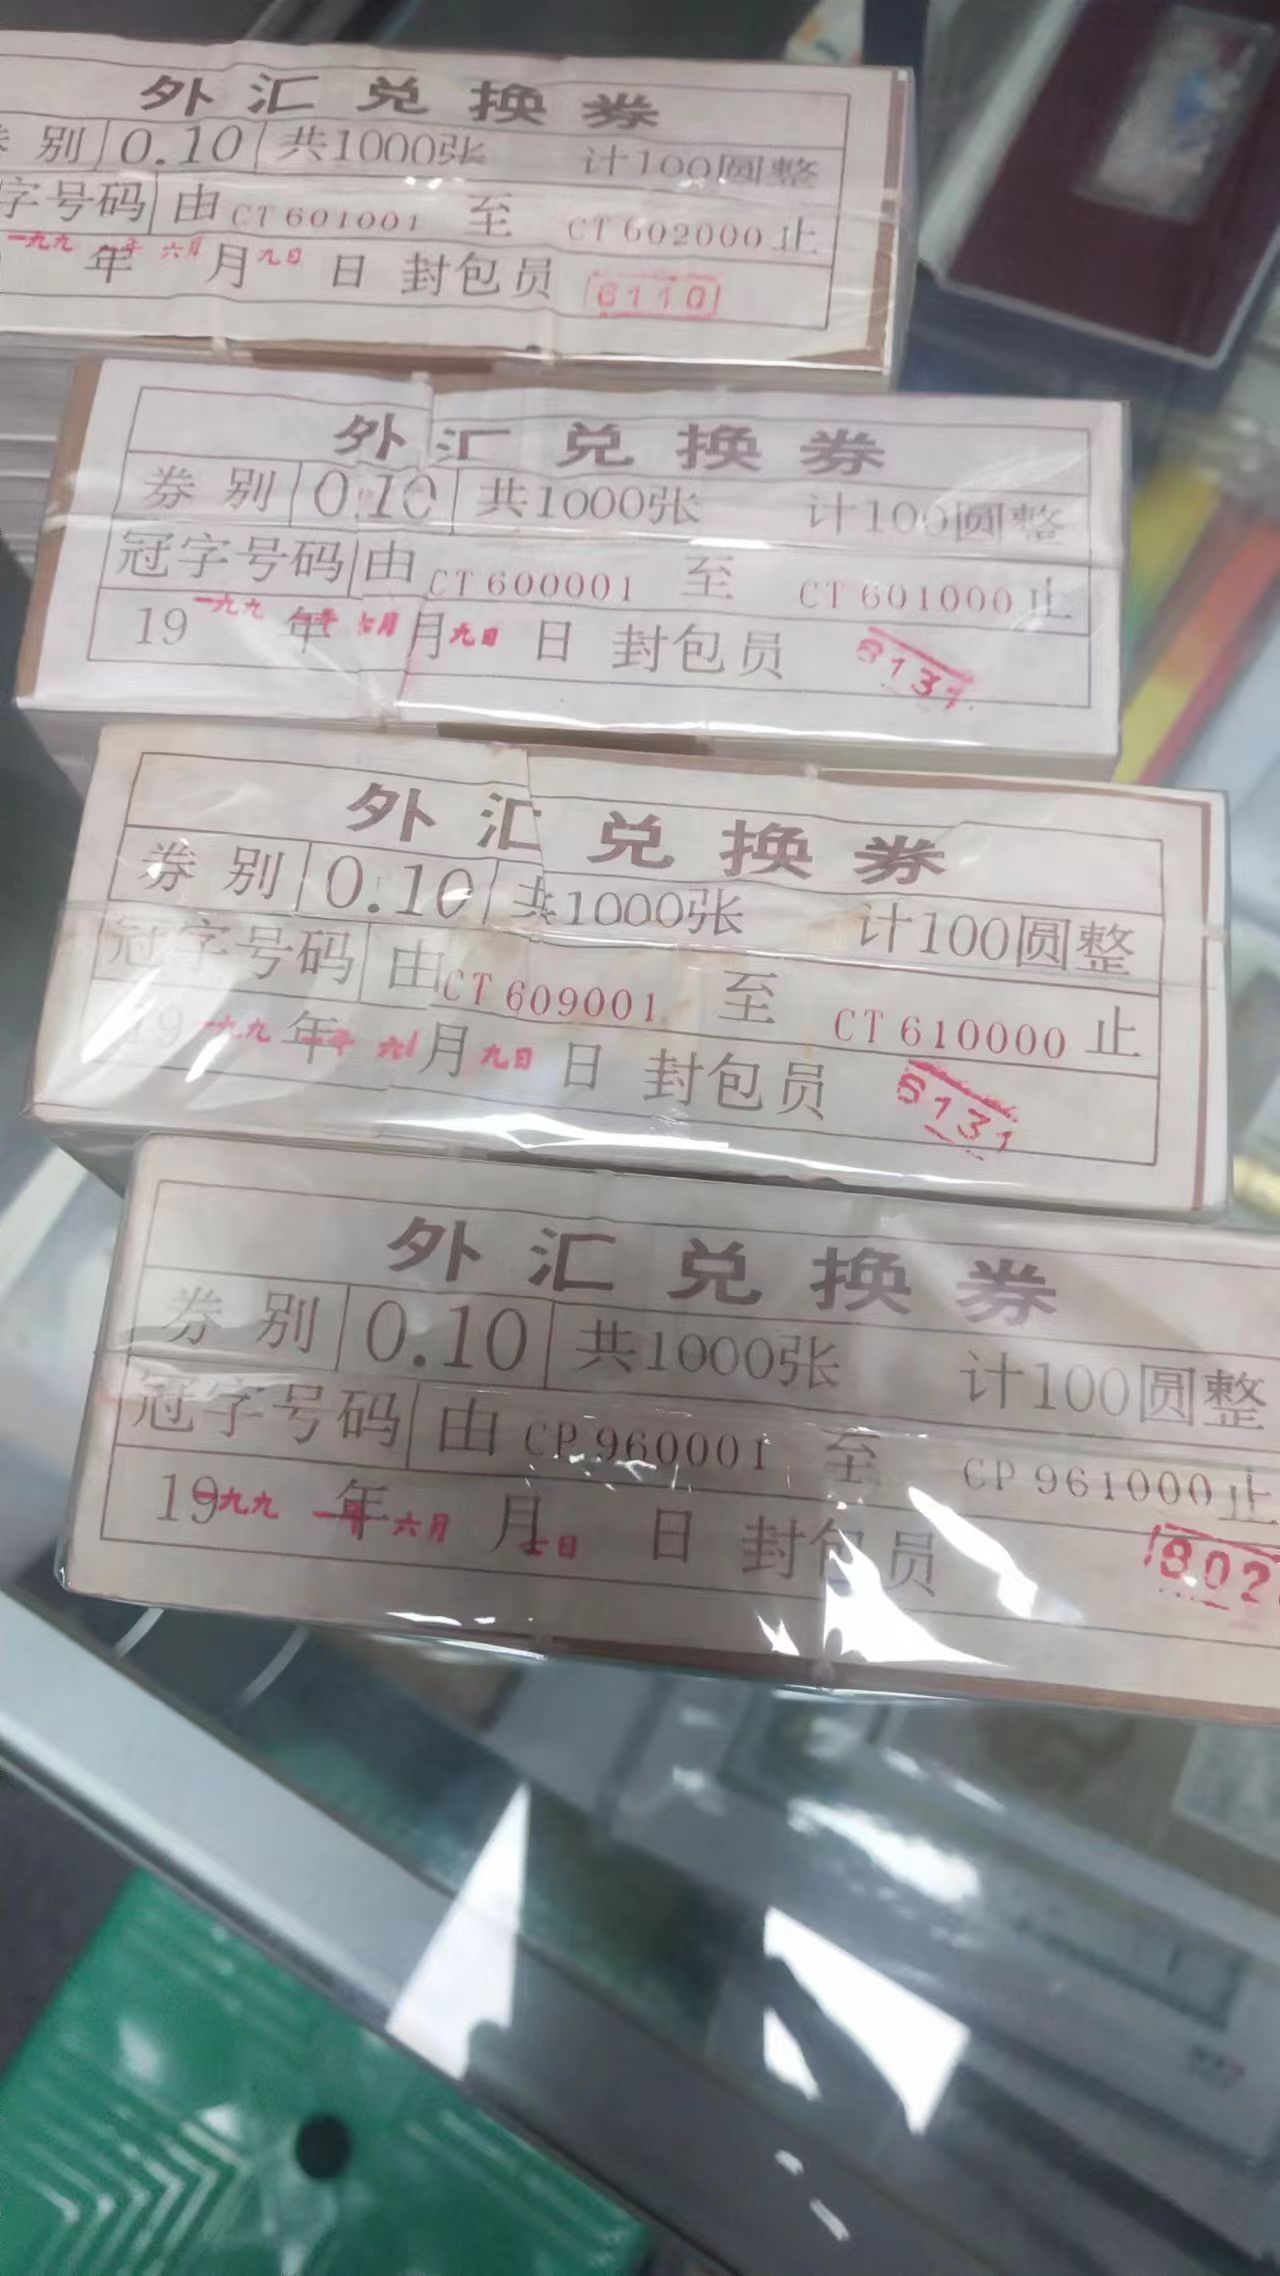 外汇兑换券
别 0.10 共1000张 计100圆整
字号码 由 CT 601001 至 CT 602000 止
一九九 年 六月 月 九日 日 封包员 6110
外汇兑换券
券别 0.10 共1000张 计100圆整
冠字号码 由 CT 600001 至 CT 601000 止
19 一九九 年 月 九日 日 封包员 6131
外汇兑换券
券别 0.10 共1000张 计100圆整
冠字号码 由 CT 609001 至 CT 610000 止
19 一九九 年 六 月 九日 日 封包员 6131
外汇兑换券
券别 0.10 共1000张 计100圆整
冠字号码 由 CP 960001 至 CP 961000 止
19 一九九 一年 年 六月 月 七日 日 封包员 802